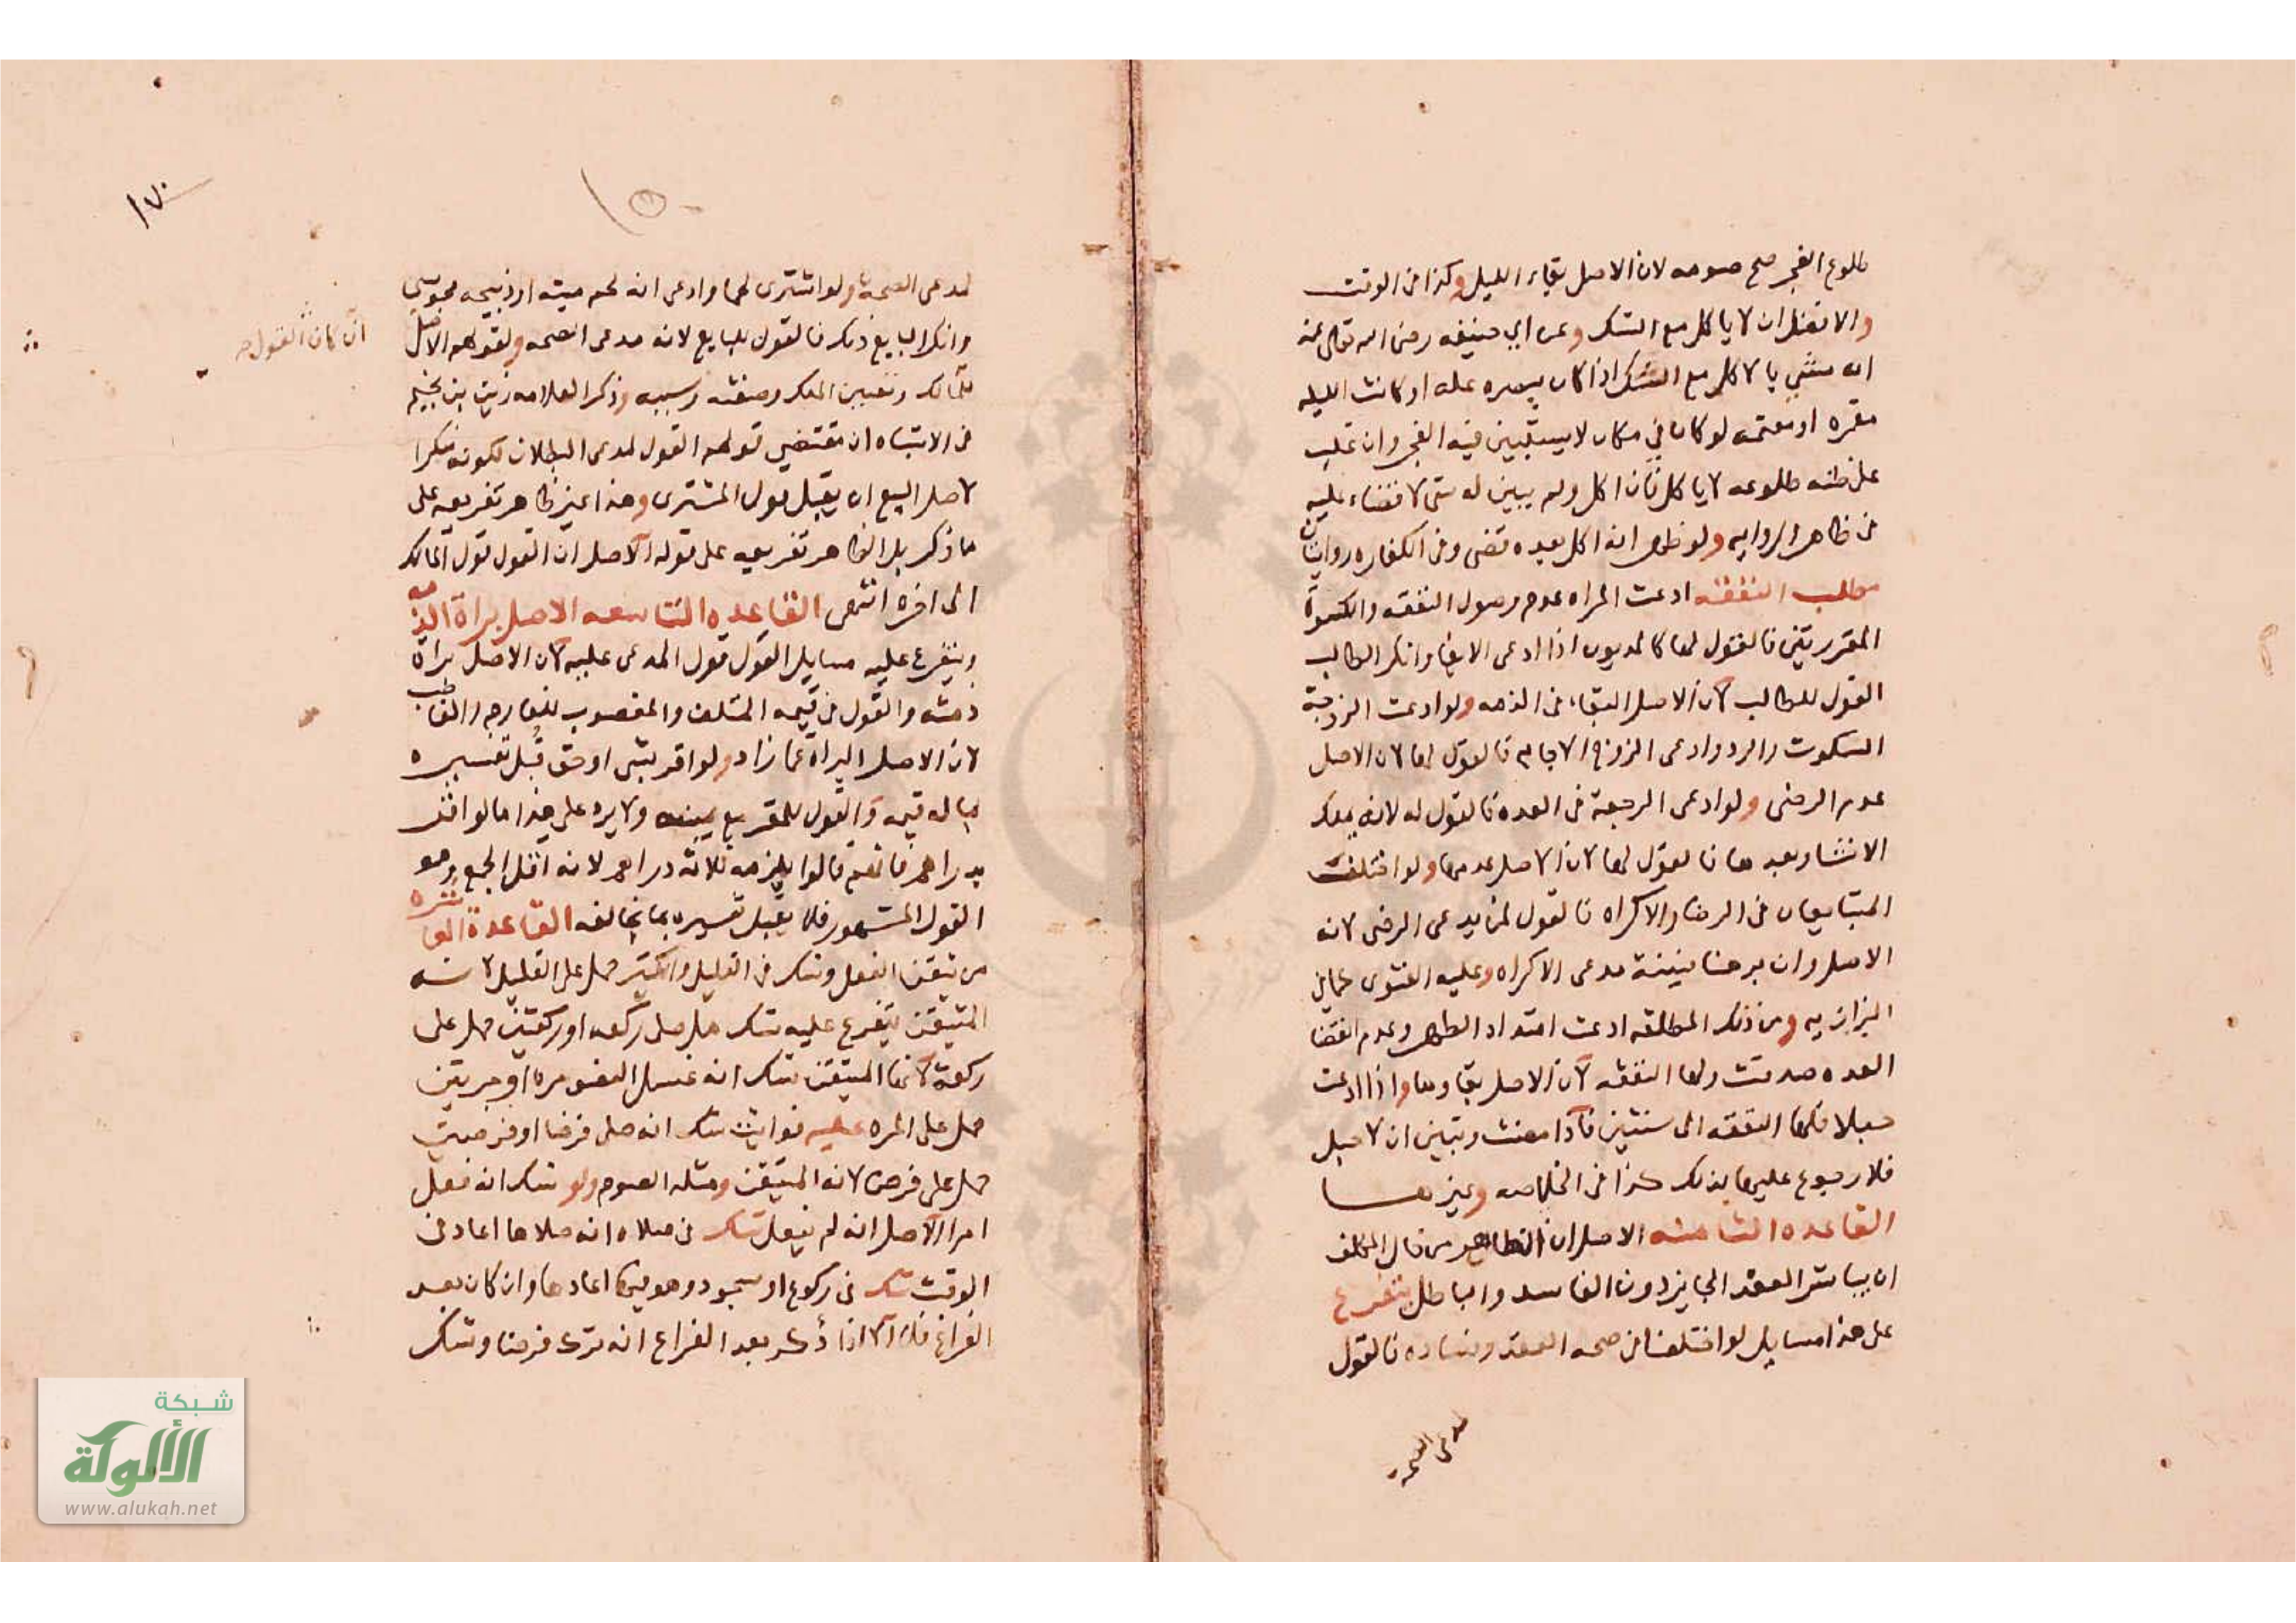 طلوع الفجر صح صومه لان الاصل بقاء الليل وكذا في الوقت
والافضل ان لا ياكل مع الشك وعن ابي حنيفه رضي الله تعالى عنه
انه مسئ بالاكل مع الشك اذا كان ببصره عله او كانت الليله
مقمره او متغيمه او كان في مكان لا يستبين فيه الفجر وان غلب
على ظنه طلوعه لا ياكل فان اكل ولم يبين له شي لا قضاء عليه
في ظاهر الروايه ولو ظهر انه اكل بعده قضى وفي الكفاره روايتان
مطلب النفقه ادعت المراه عدم وصول النفقه والكسوة
المقررتين فالقول لها كالمديون اذا ادعى الايفا وانكر الطالب
القول للطالب لان الاصل البقاء في الذمه ولو ادعت الزوجة
السكوت والرد وادعى الزوج الاجازه فالقول لها لان الاصل
عدم الرضى ولو ادعى الرجعة في العده فالقول له لانه يملك
الانشا وبعدها فالقول لها لان الاصل عدمها ولو اختلف
المتبايعان في الرضا والاكراه فالقول لمن يدعى الرضى لانه
الاصل وان برهنا فبينة مدعى الاكراه وعليه الفتوى كما في
البزازيه ومن ذلك المطلقه ادعت امتداد الطهر وعدم انقضا
العده صدقت ولها النفقه لان الاصل بقاوها واذا ادعت
حبلا فلها النفقه الى سنتين فاذا مضت وتبين ان لا حبل
فلا رجوع عليها بذلك كذا في الخلاصه وغيرها
القاعده الثامنه الاصل ان الظاهر من حال المكلف
ان يباشر العقد الجايز دون الفاسد والباطل يتفرع
على هذا مسايل لو اختلفا في صحه العقد وفساده فالقول
مدعى الصحة
١٧
١٥
لمدعى الصحة ولو اشترى لحما وادعى انه لحم ميته او ذبيحه مجوسي
وانكر البايع ذلك فالقول للبايع لانه مدعى الصحه ولقولهم الاصل
ان كان القول
للمالك وتعيين الملك وصفته وسببه وذكر العلامه زين بن نجيم
في الاشباه ان مقتضى قولهم القول لمدعى البطلان لكونه منكرا
لاصل البيع ان يقبل قول المشترى وهذا غير ظاهر تفريعه على
ما ذكر بل الظاهر تفريعه على قوله الاصل ان القول قول المالك
الى اخره انتهى القاعده التاسعه الاصل براة الذمه
ويتفرع عليه مسايل القول قول المدعى عليه لان الاصل براة
ذمته والقول في قيمه المتلف والمغصوب للغارم والغاصب
لان الاصل البراة عما زاد ولو اقر بشي او حق قبل تفسيره
بما له قيمه والقول للمقر مع يمينه ولا يرد على هذا ما لو اقر
بدراهم فانهم قالوا يلزمه ثلاثه دراهم لانه اقل الجمع وهو
القول المشهور فلا يقبل تفسيره بما يخالفه القاعدة العاشره
من تيقن الفعل وشك في القليل والكثير حمل على القليل لانه
المتيقن يتفرع عليه شك هل صلى ركعه او ركعتين حمل على
ركعة لانها المتيقن شك انه غسل العضو مره او مرتين
حمل على المره عليه فوايت شك انه صلى فرضا او فرضين
حمل على فرض لانه المتيقن ومثله الصوم ولو شك انه فعل
امرا الاصل انه لم يفعل شك في صلاه انه صلاها اعاد في
الوقت شك في ركوع او سجود وهو فيها اعادها وان كان بعد
الفراغ فلا الا اذا ذكر بعد الفراغ انه ترك فرضا وشك
شبكة
الألوكة
www.alukah.net